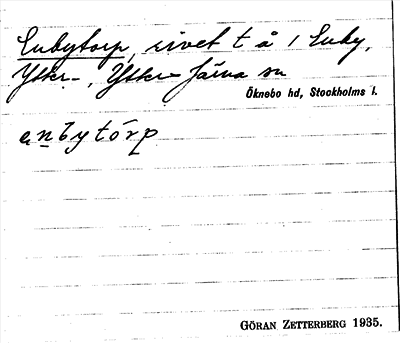 Enbytorp, rivet t å 1 Enby,
Ytter-, Ytter-Järna sn
Öknebo hd, Stockholms l.
enbytórp
GÖRAN ZETTERBERG 1935.